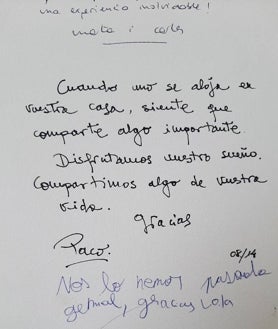 una experiencia inolvidable!
marta i carles
Cuando uno se aloja en
vuestra casa, siente que
comparte algo importante.
Disfrutamos vuestro sueño.
Compartimos algo de vuestra
vida.
Gracias
Paco.
08/14
Nos lo hemos pasado
genial, gracias Lola